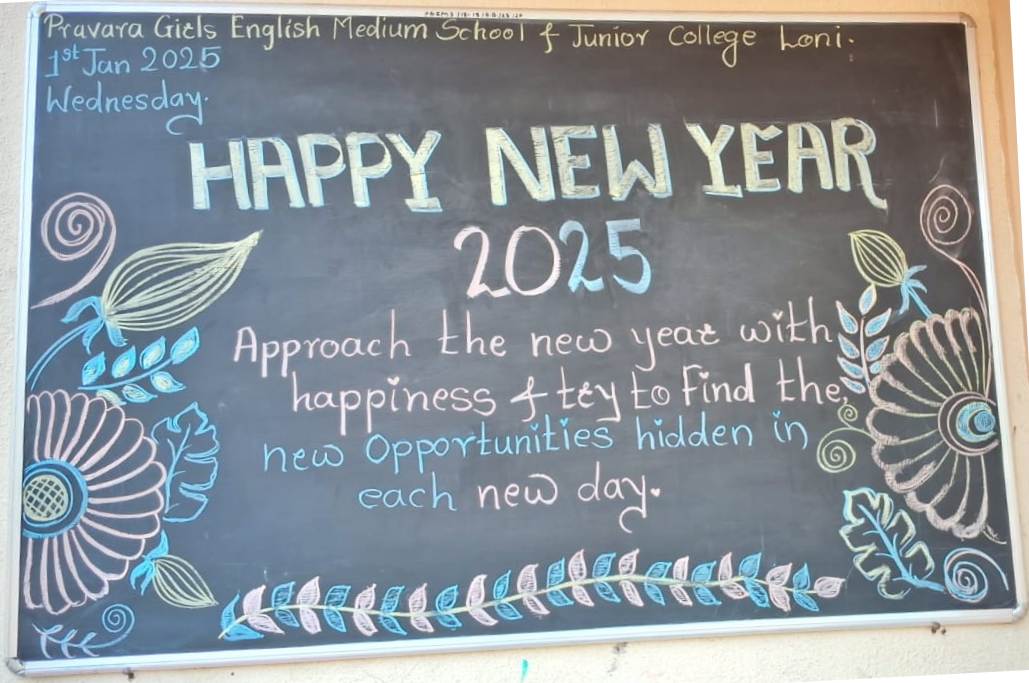 Pravara Girls English Medium School & Junior College Loni.
1st Jan 2025
Wednesday.
HAPPY NEW YEAR
2025
Approach the new year with
happiness & try to find the
new Opportunities hidden in
each new day.